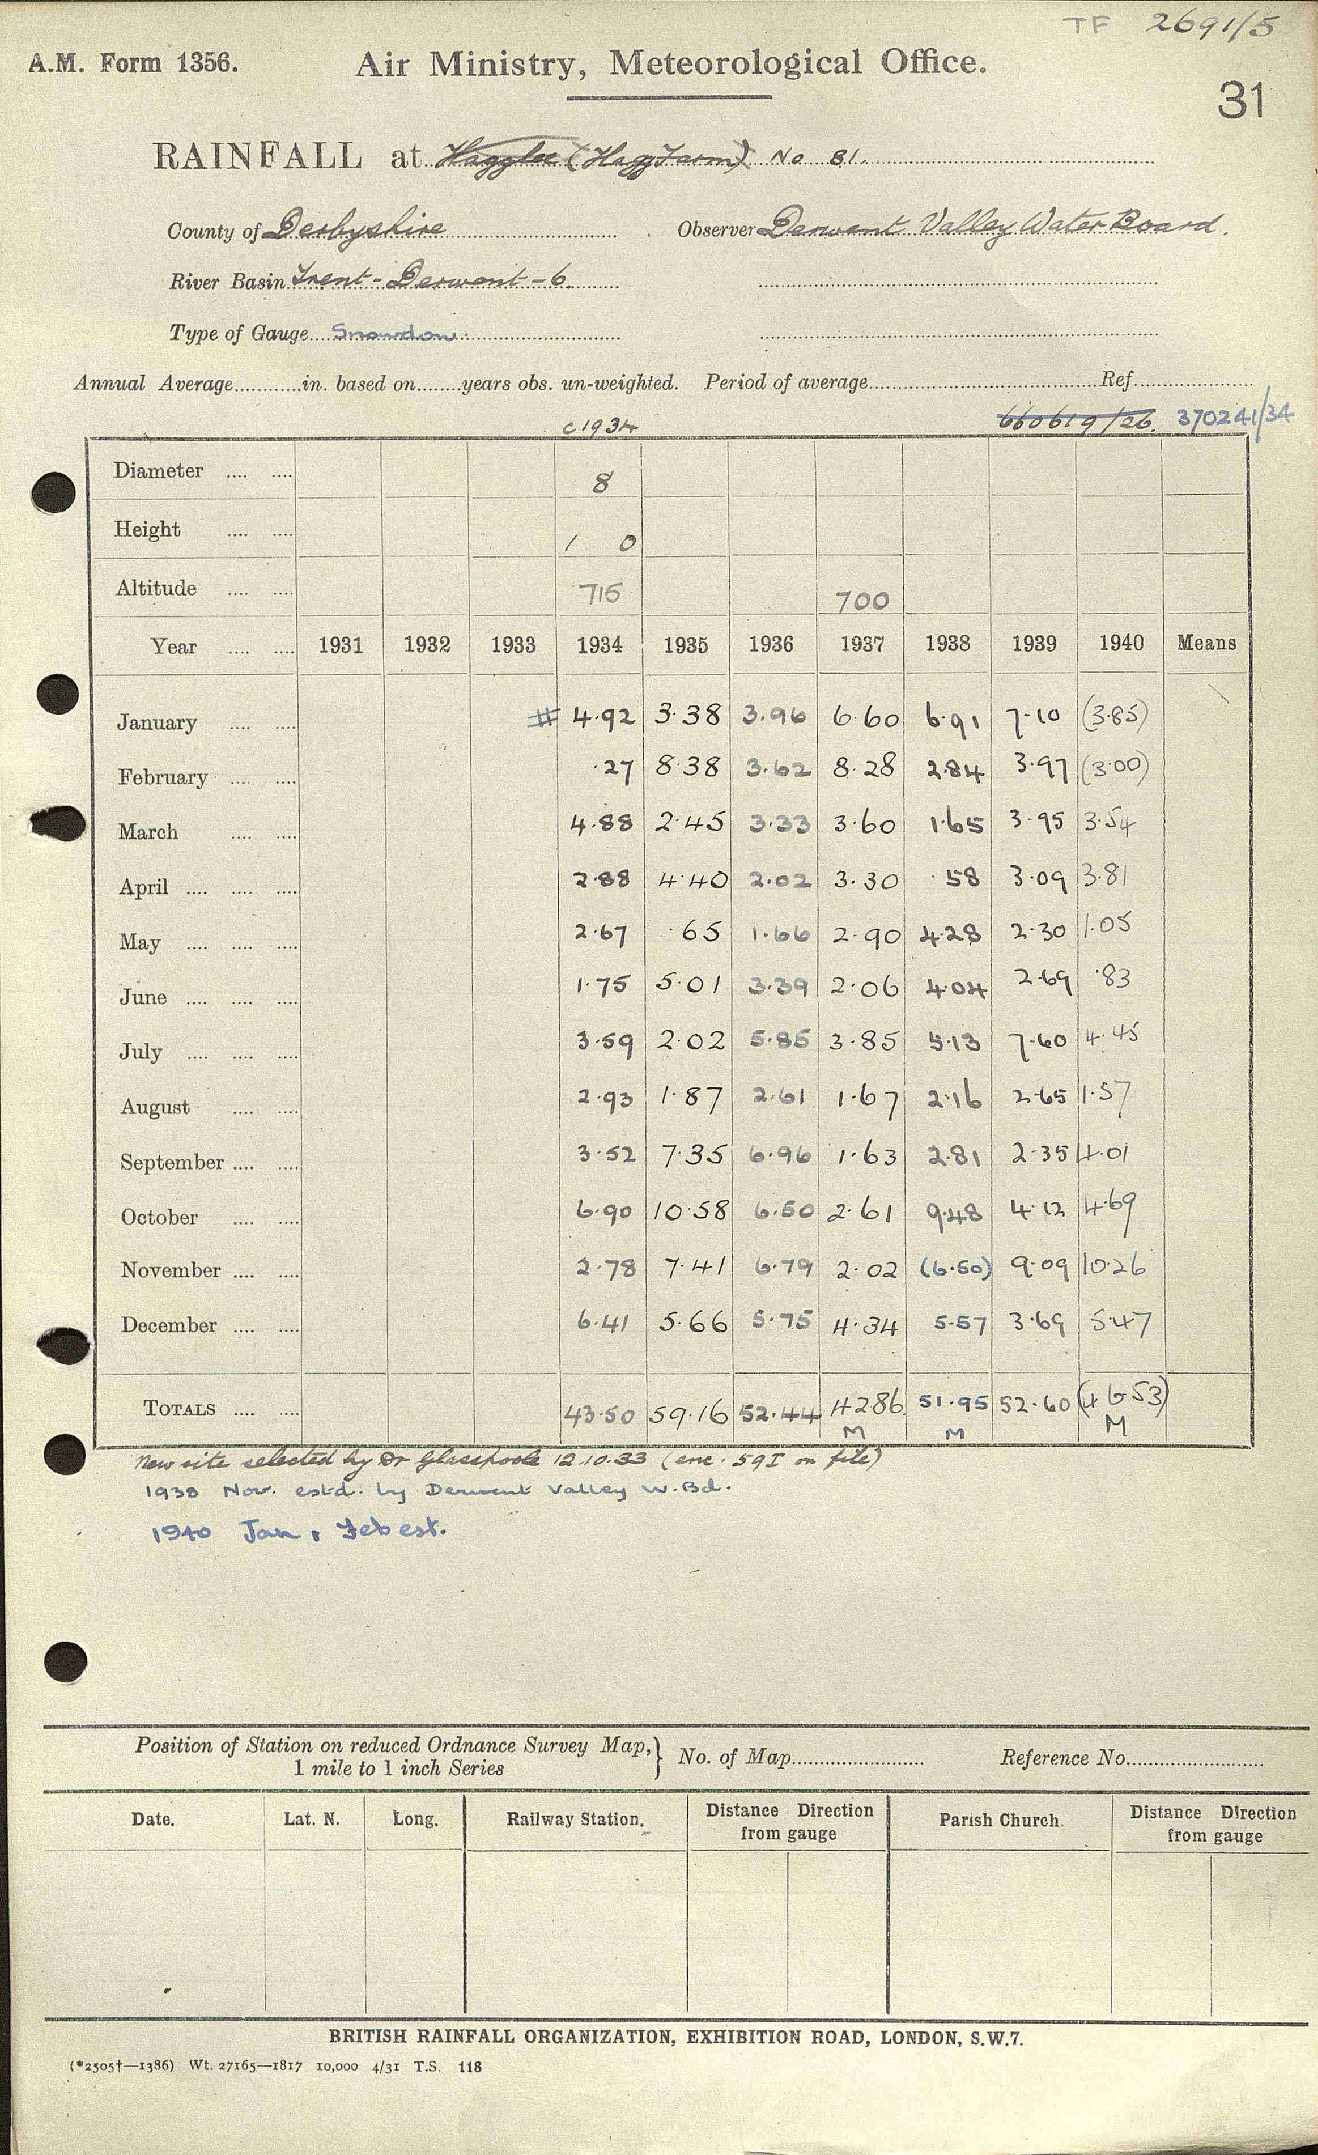 TF 2691/5
A.M. Form 1356. Air Ministry, Meteorological Office.
31
RAINFALL at Hagglee (Hagg Farm) No 81.
County of Derbyshire Observer Derwent Valley Water Board.
River Basin Trent - Derwent - 6
Type of Gauge Snowdon
Annual Average in. based on years obs. un-weighted. Period of average Ref.
c1934 660619/26. 370241/34
Diameter 8
Height 1 0
Altitude 715 700
Year 1931 1932 1933 1934 1935 1936 1937 1938 1939 1940 Means
January # 4.92 3.38 3.96 6.60 6.91 7.10 (3.85)
February .27 8.38 3.62 8.28 2.84 3.97 (3.00)
March 4.88 2.45 3.33 3.60 1.65 3.95 3.54
April 2.88 4.40 2.02 3.30 .58 3.09 3.81
May 2.67 .65 1.66 2.90 4.28 2.30 1.05
June 1.75 5.01 3.39 2.06 4.04 2.69 .83
July 3.59 2.02 5.85 3.85 5.13 7.60 4.45
August 2.93 1.87 2.61 1.67 2.16 2.65 1.57
September 3.52 7.35 6.96 1.63 2.81 2.35 4.01
October 6.90 10.58 6.50 2.61 9.48 4.12 4.69
November 2.78 7.41 6.79 2.02 (6.50) 9.09 10.26
December 6.41 5.66 5.75 4.34 5.57 3.69 5.47
TOTALS 43.50 59.16 52.44 42.86 51.95 52.60 (46.53)
M M M
New site selected by Dr Glasspoole 12.10.33 (enc. 59I on file)
1938 Nov. estd. by Derwent Valley W. Bd.
1940 Jan, Feb est.
Position of Station on reduced Ordnance Survey Map,
1 mile to 1 inch Series
No. of Map Reference No.
Date. Lat. N. Long. Railway Station. Distance Direction from gauge Parish Church. Distance Direction from gauge
BRITISH RAINFALL ORGANIZATION, EXHIBITION ROAD, LONDON, S.W.7.
(*2505†—1386) Wt. 27165—1817 10,000 4/31 T.S. 118